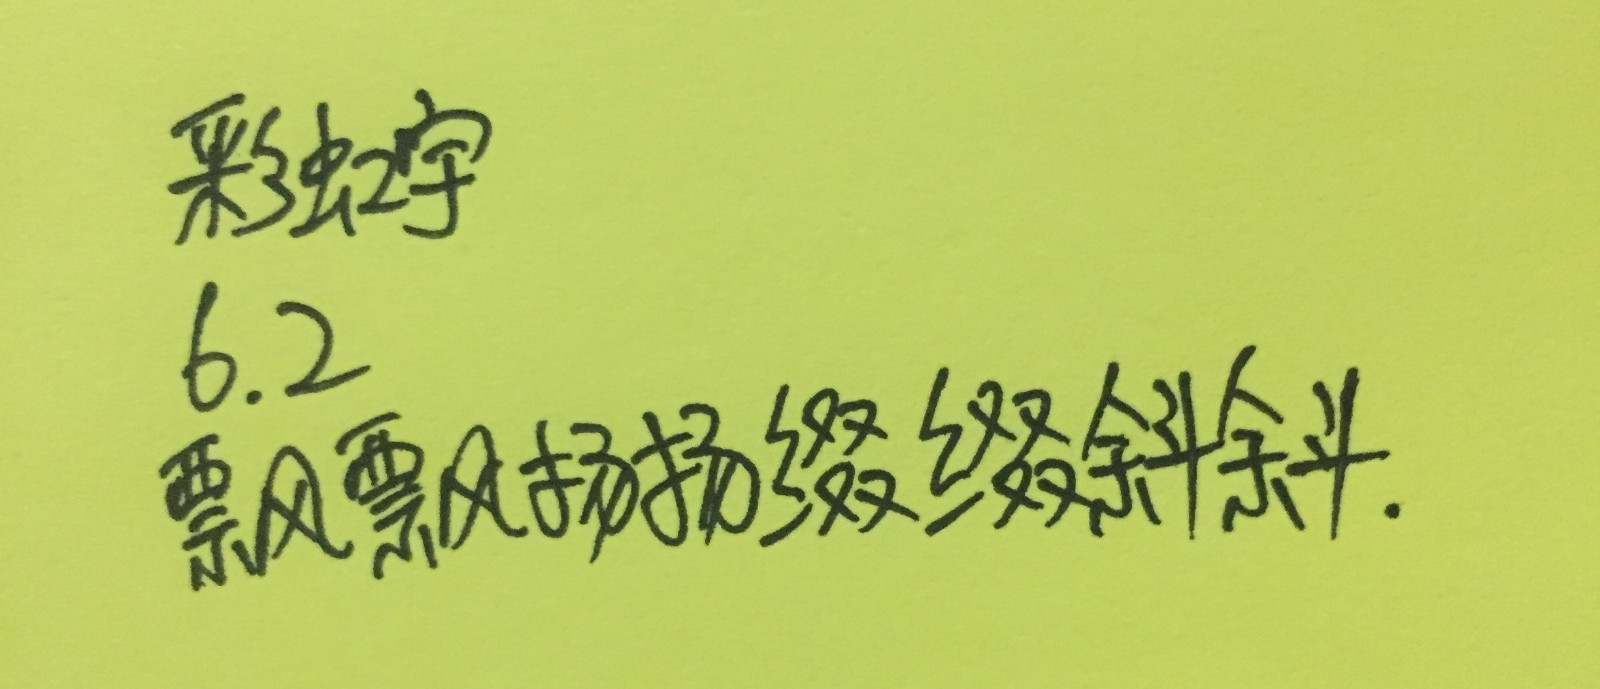 彩虹字
6.2
飘飘扬扬缀缀斜斜.